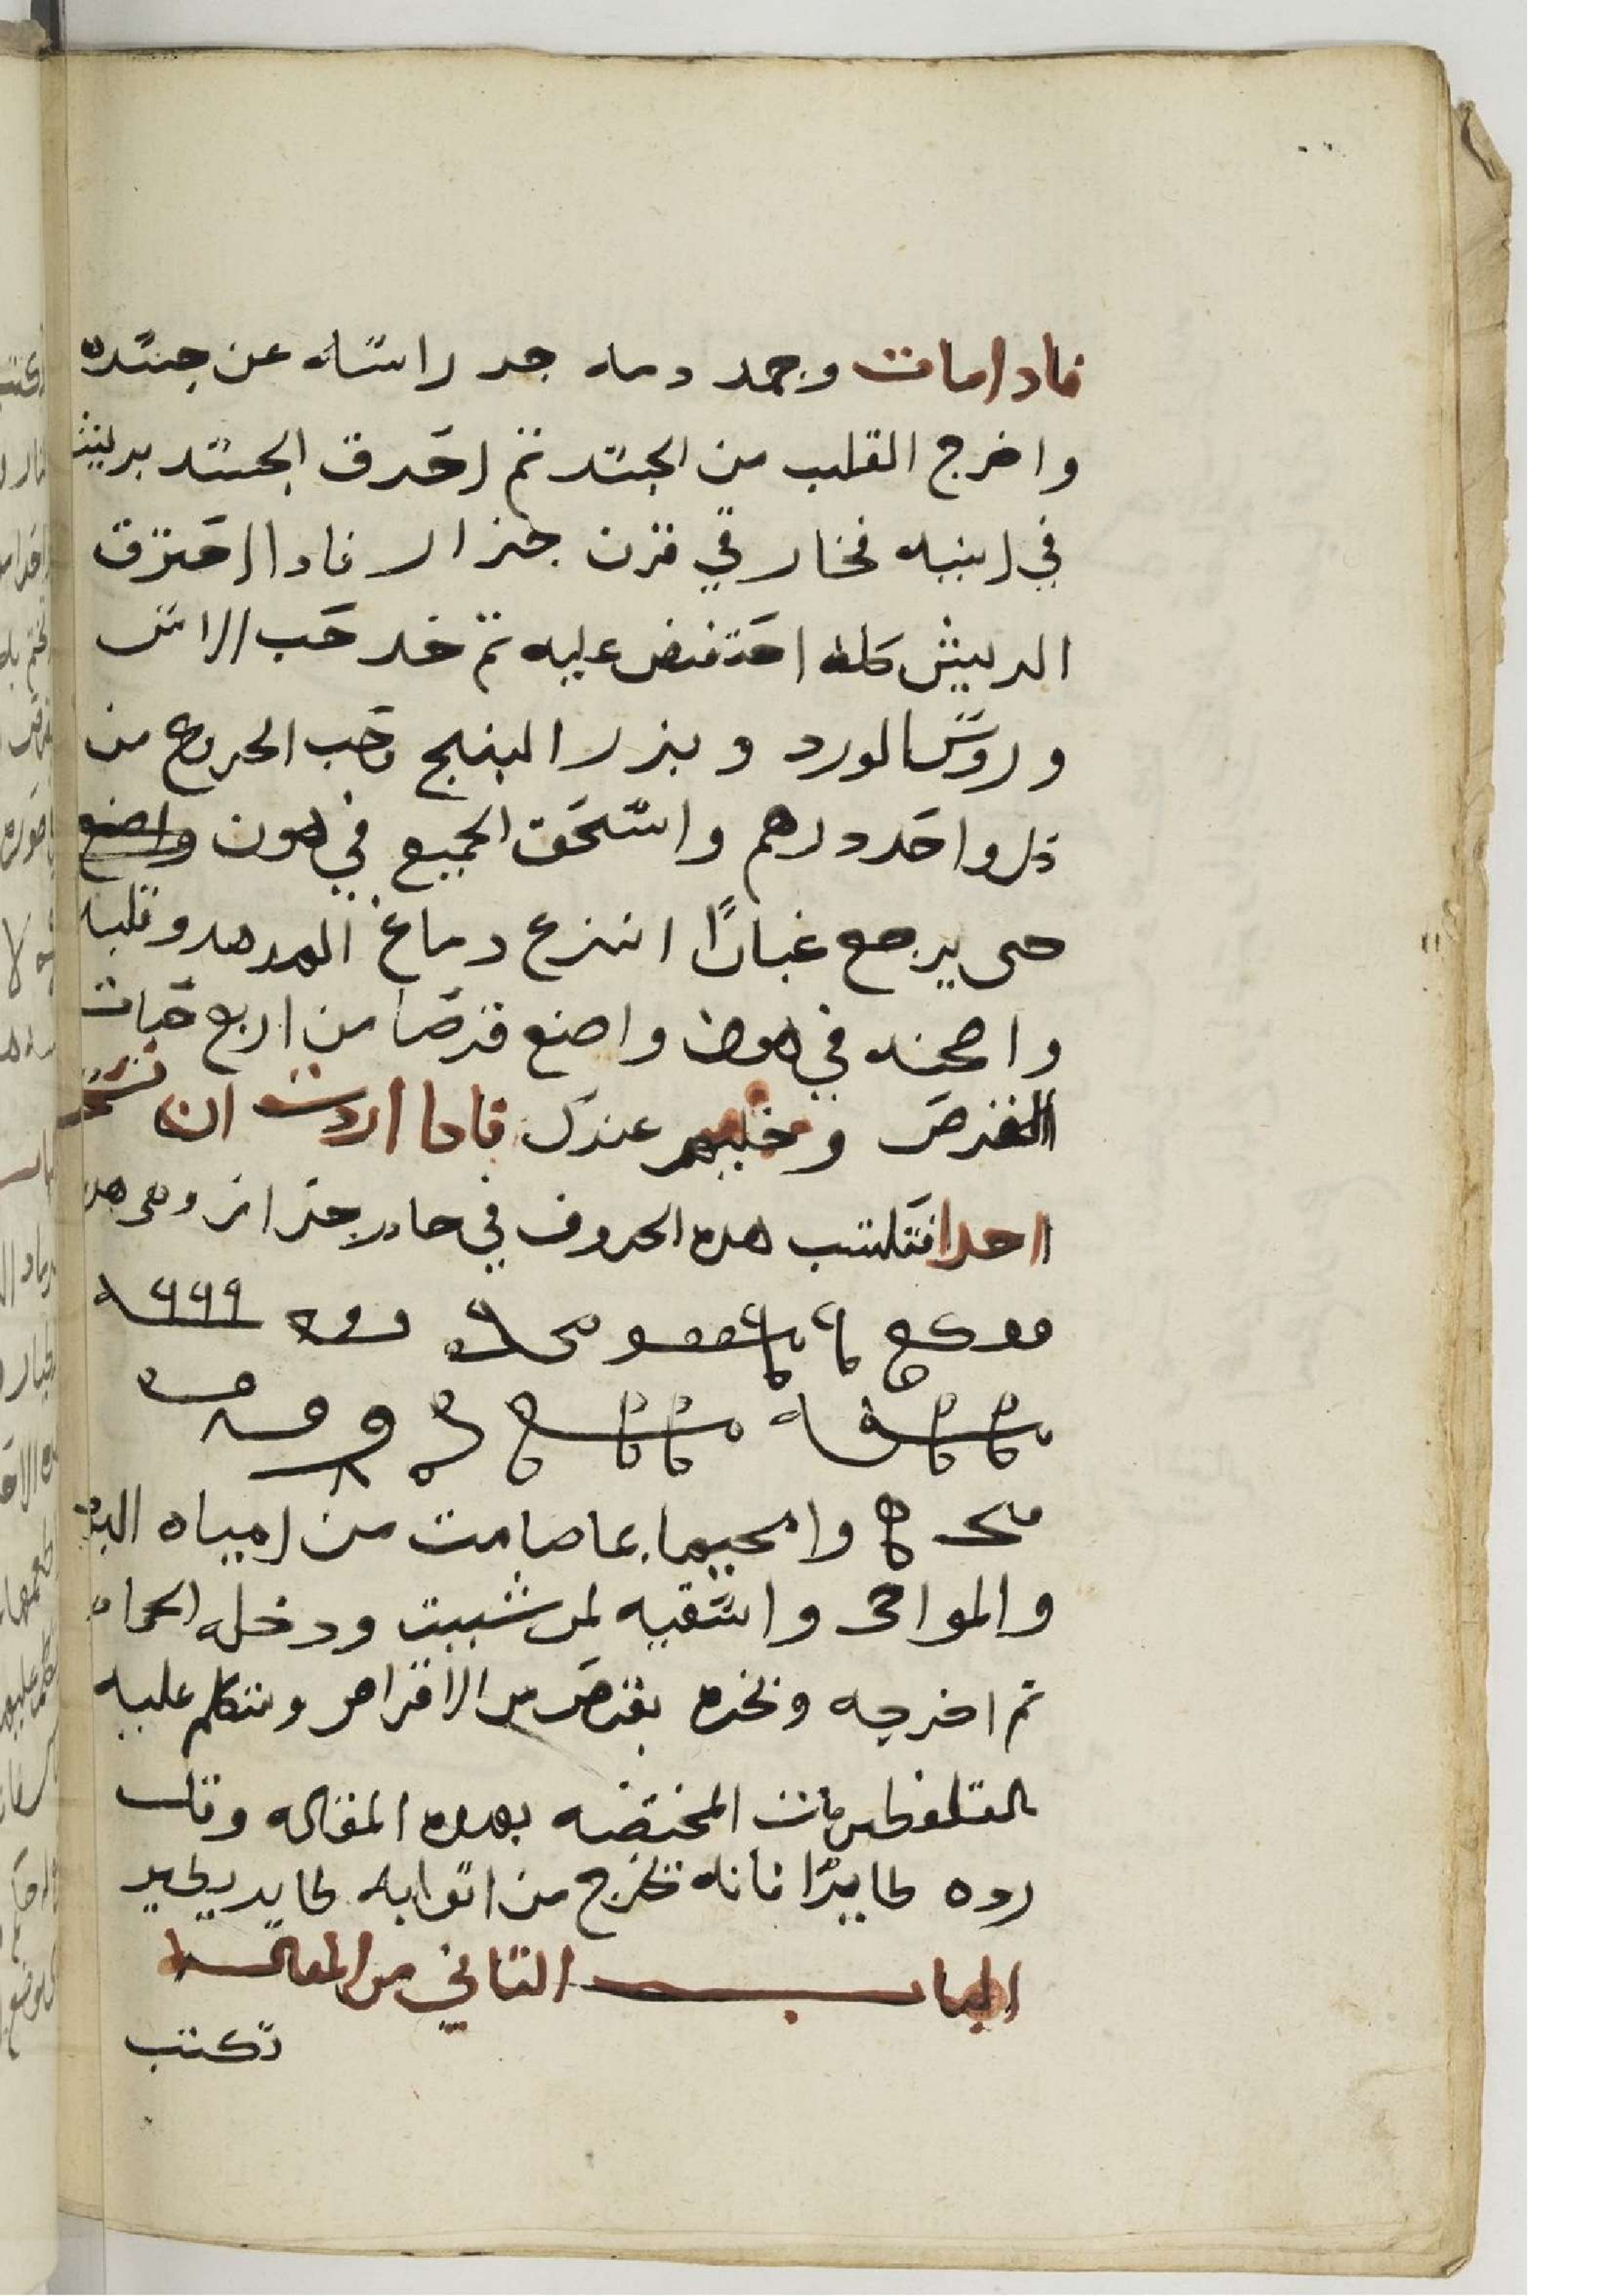 فادا مات وجمد دمه جد راسه عن جسده
واخرج القلب من الجسد تم احرق الجسد بريش
في انيه فخار في فرن جزار فادا احترق
الريش كله احتفض عليه تم خد حب الاس
وروس الورد وبزر البنج وحب الخروع من
كل واحد درهم واسحق الجميع في هون واصنع
حتى يرجع غبارًا انزع دماغ الهدهد وقلبه
واصحنه في هون واصنع قرصا من اربع حبات
القرص وخليهم عندك فادا اردت ان تسحر
احدا فتكتب هده الحروف في جام زجاج وهى هده
وامحيها بما صامت من امياه البير
والمواحى واسقيه لمن شييت ودخله الحمام
تم اخرجه وبخره بقرص من الاقراص وتتكلم عليه
بالقلفطريات المختصه بهده المقاله وقلب
رده طايرًا فانه تخرج من اتوابه طاير يطير
الباب التاني من المقاله
تكتب